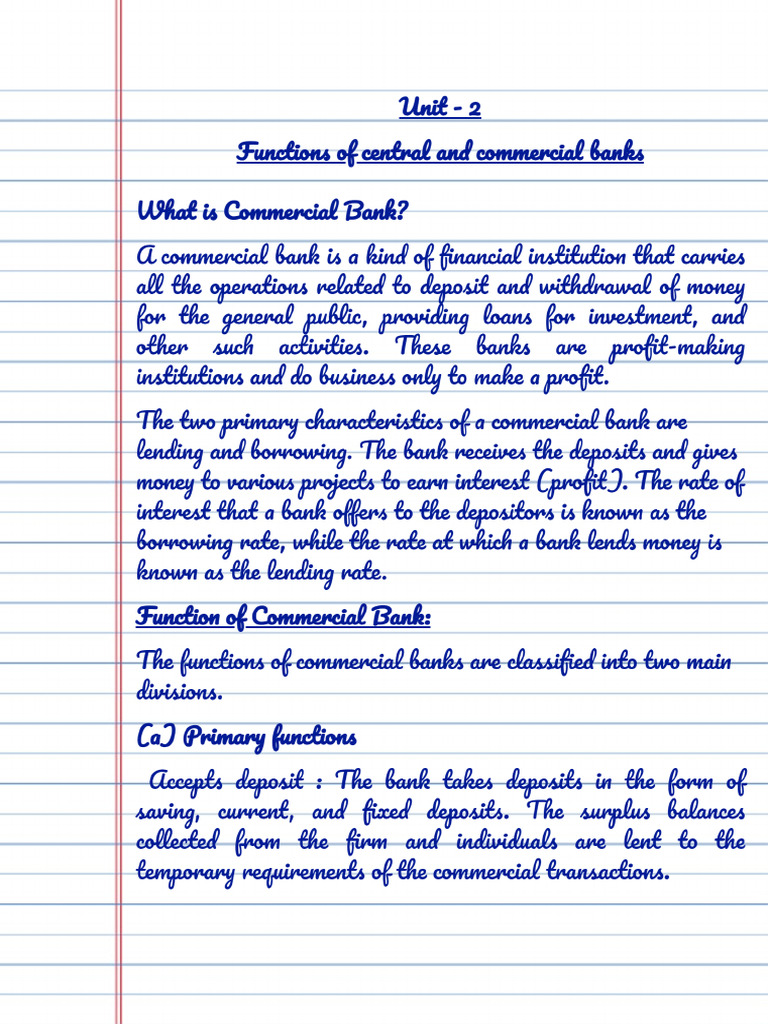 Unit - 2
Functions of central and commercial banks
What is Commercial Bank?
A commercial bank is a kind of financial institution that carries
all the operations related to deposit and withdrawal of money
for the general public, providing loans for investment, and
other such activities. These banks are profit-making
institutions and do business only to make a profit.
The two primary characteristics of a commercial bank are
lending and borrowing. The bank receives the deposits and gives
money to various projects to earn interest (profit). The rate of
interest that a bank offers to the depositors is known as the
borrowing rate, while the rate at which a bank lends money is
known as the lending rate.
Function of Commercial Bank:
The functions of commercial banks are classified into two main
divisions.
(a) Primary functions
Accepts deposit : The bank takes deposits in the form of
saving, current, and fixed deposits. The surplus balances
collected from the firm and individuals are lent to the
temporary requirements of the commercial transactions.